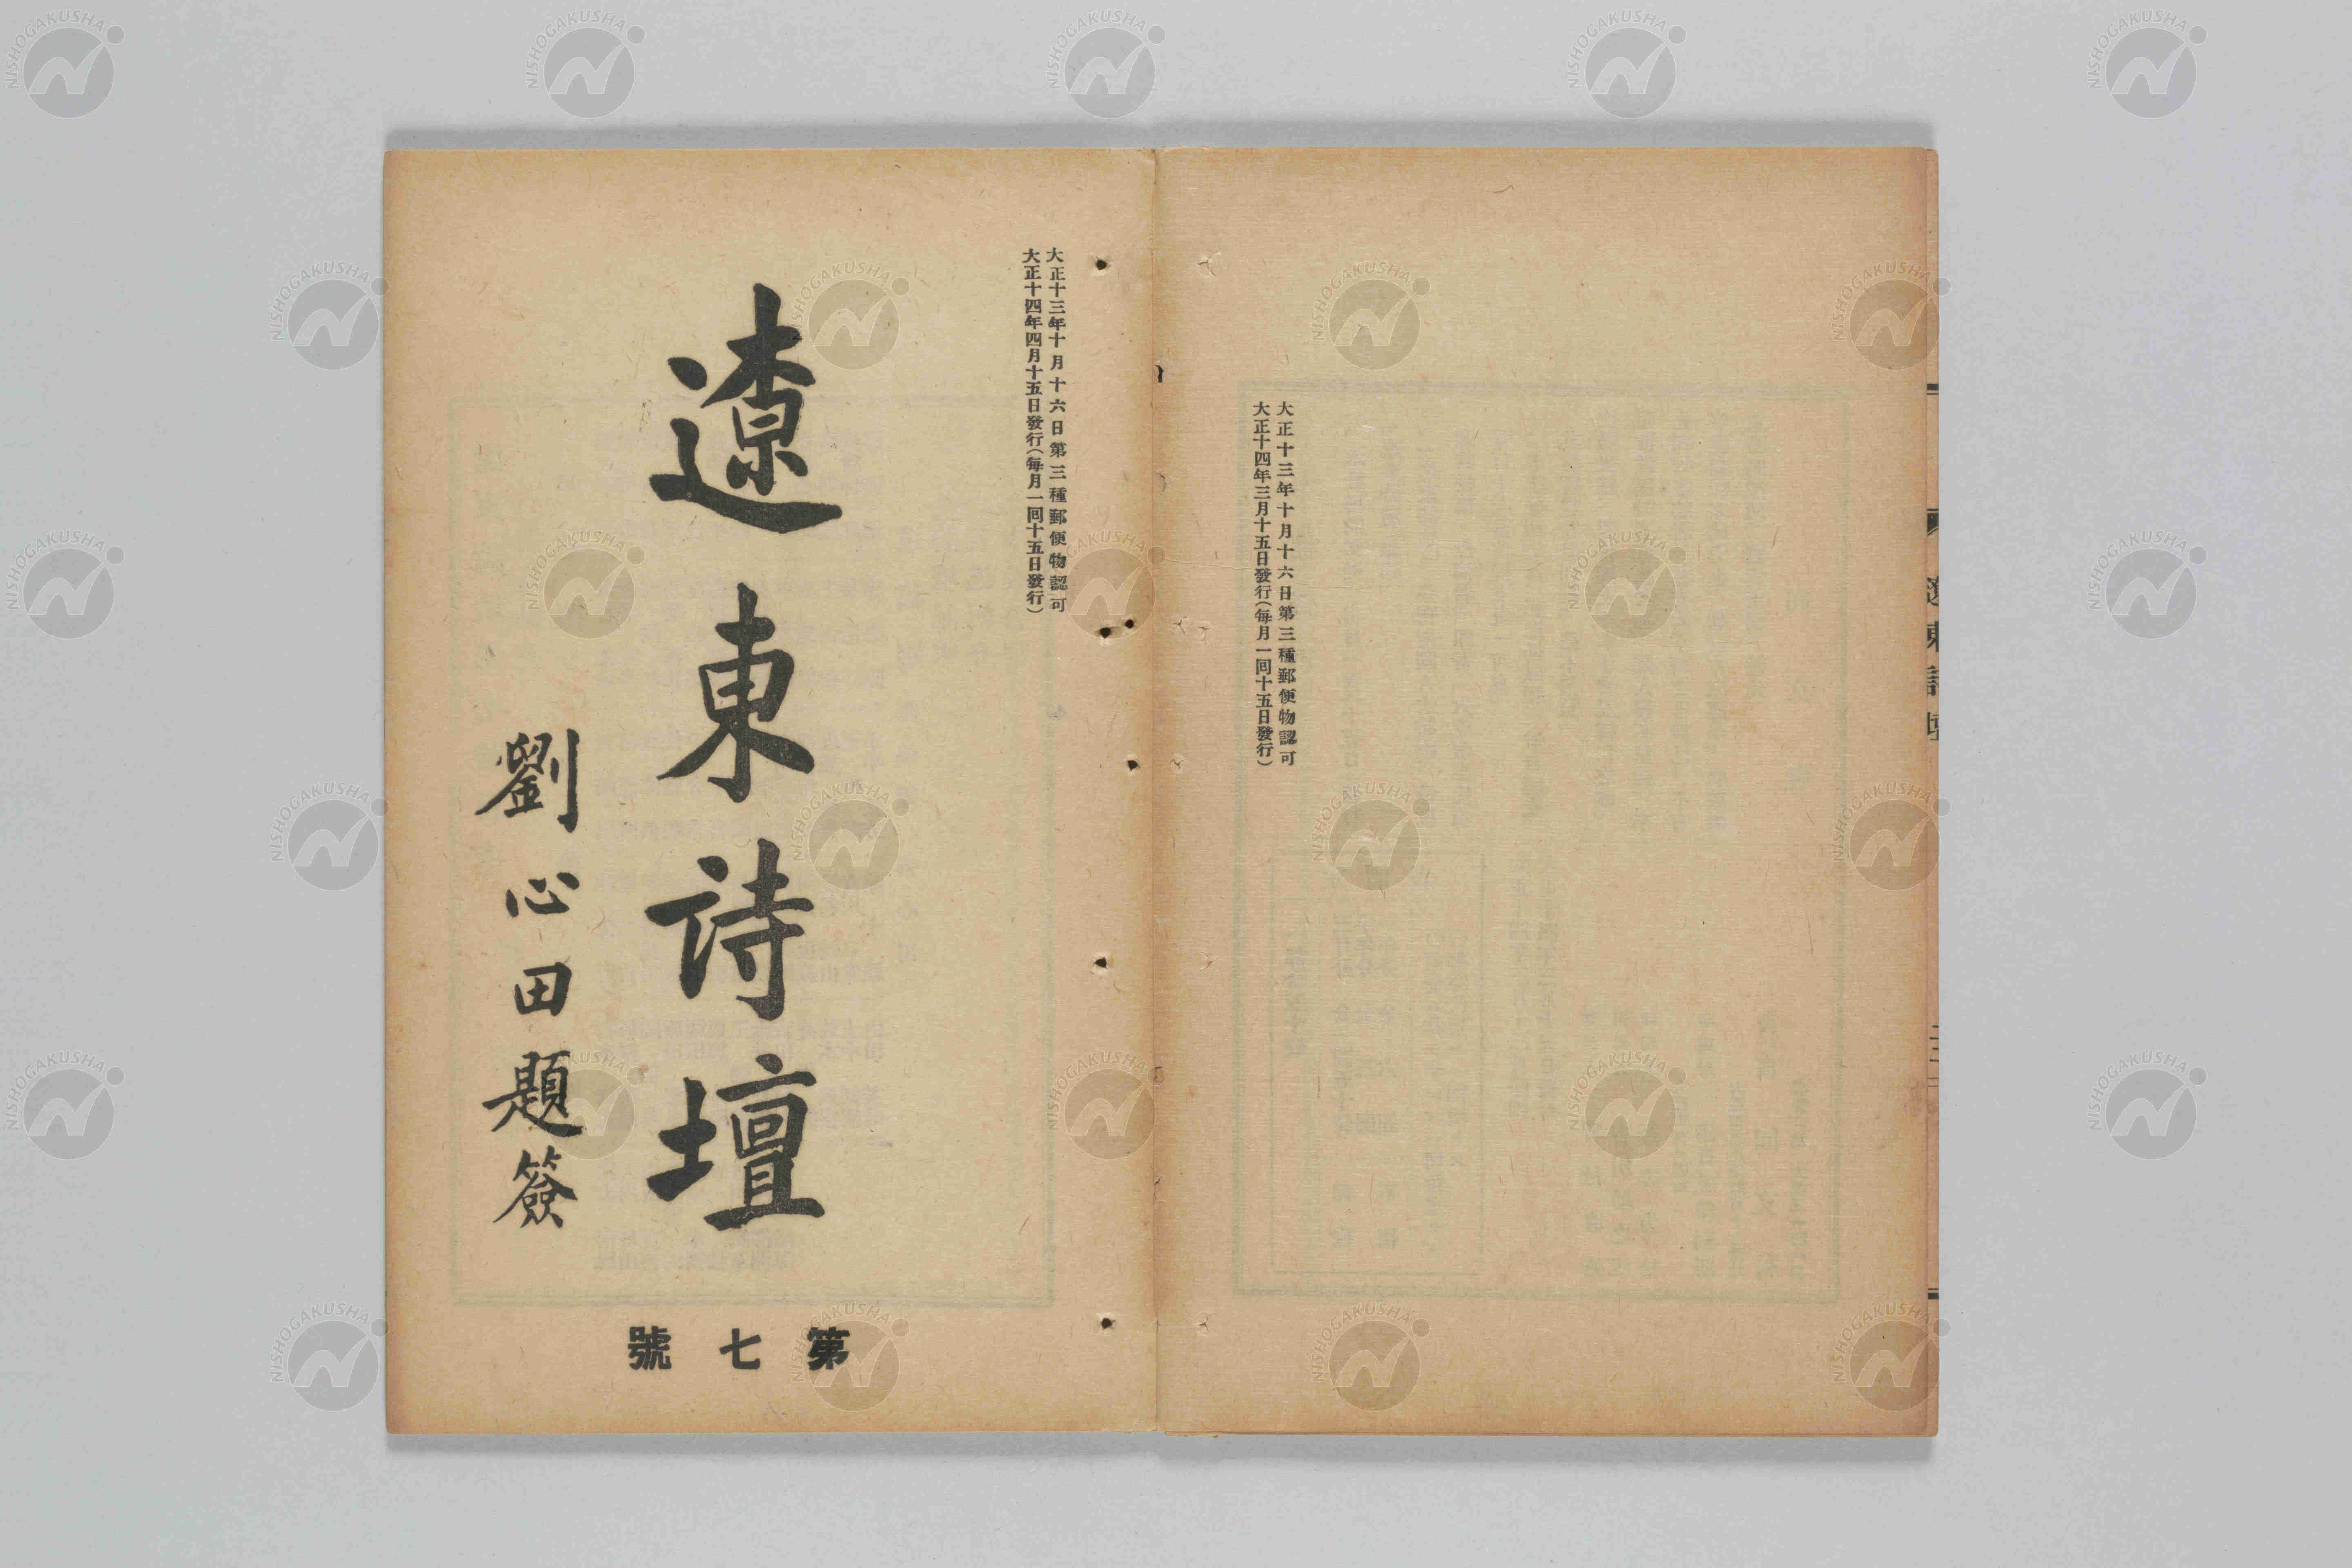 大正十三年十月十六日第三種郵便物認可
大正十四年三月十五日發行(每月一回十五日發行)
大正十三年十月十六日第三種郵便物認可
大正十四年四月十五日發行(每月一回十五日發行)
遼東詩壇
劉心田題簽
第七號
遼東詩壇
NISHOGAKUSHA